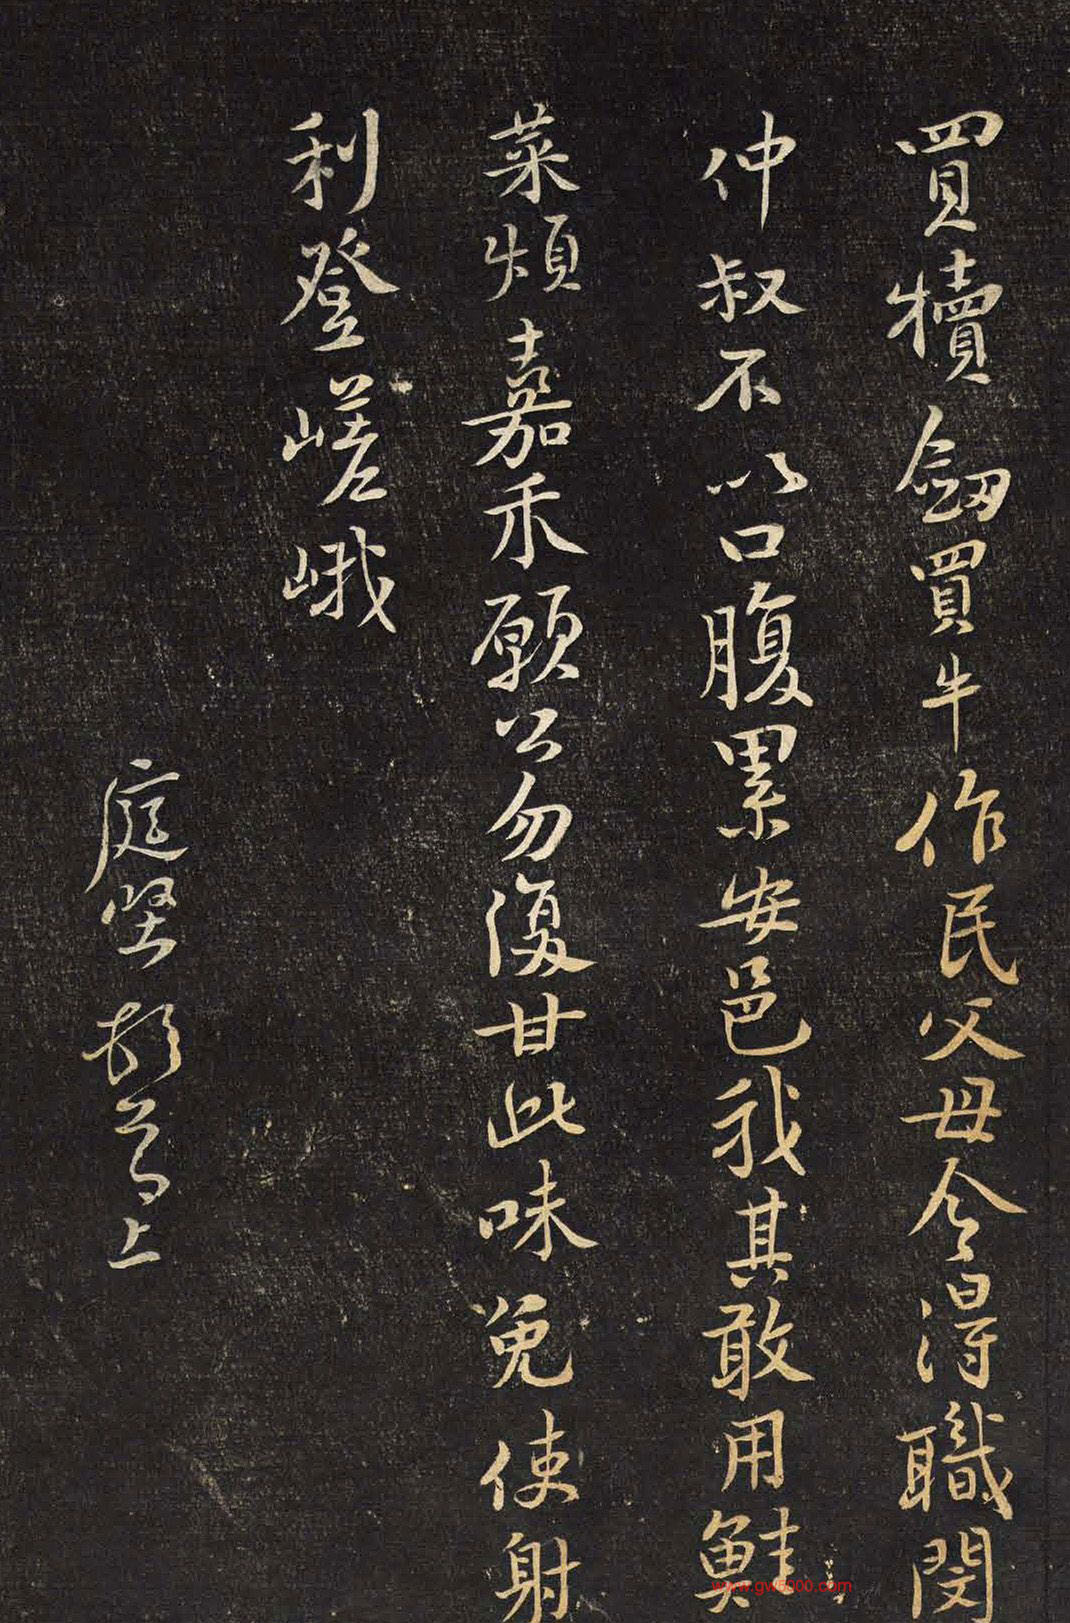 買犢劔買牛作民父母今得職閔
仲叔不以口腹累安邑我其敢用鮭
菜煩嘉禾願公勿復甘此味免使射
利登嵯峨
庭堅頓首上
www.gw8000.com